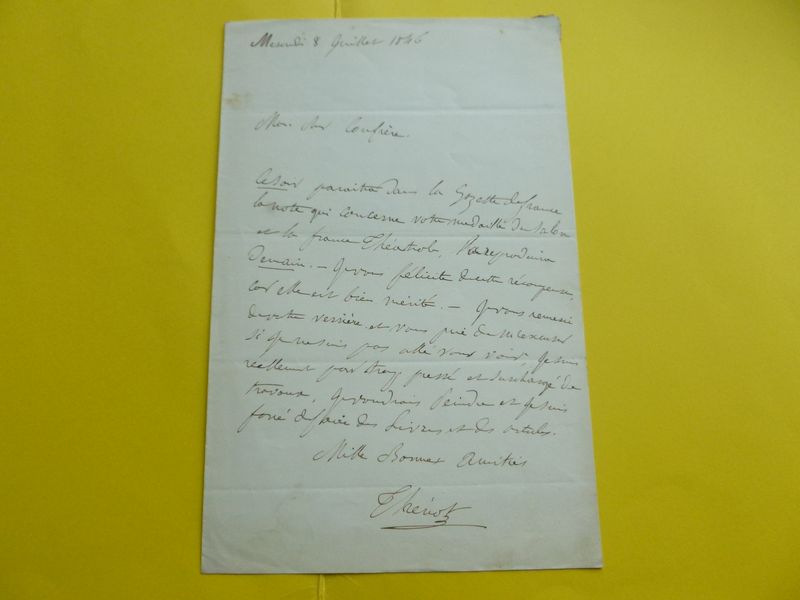 Mercredi 8 Juillet 1846
Mon cher Confrère.
Ce soir paraitra dans la Gazette de france
la note qui concerne votre medaille du Salon
et la france Théatrale, la reproduira
Demain. — Je vous félicite de cette récompense,
car elle est bien mérité. — Je vous remercie
de votre et vous prie de m'excuser
si je ne suis pas allé vous voir, Je suis
reellement par trop pressé et surchargé de
travaux, Je voudrais Peindre et je suis
forcé de faire des Livres et des articles.
Mille Bonnes Amitiés
Thénot